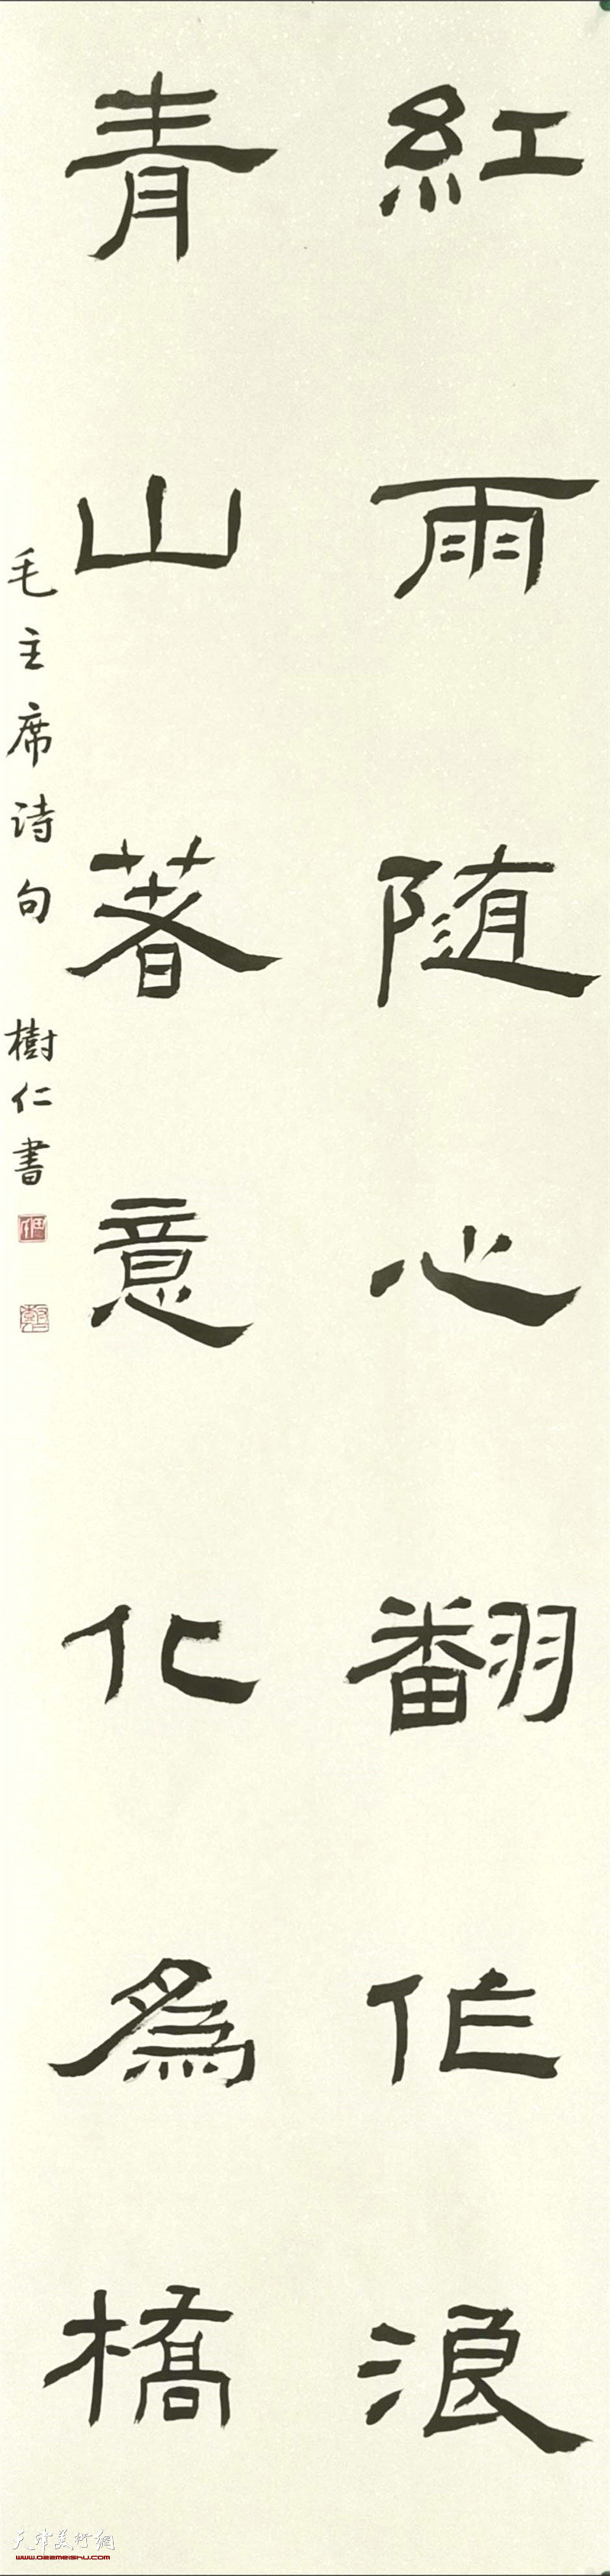 紅雨随心翻作浪
青山著意化為橋
毛主席诗句 樹仁書
天津美術網
www.022meishu.com